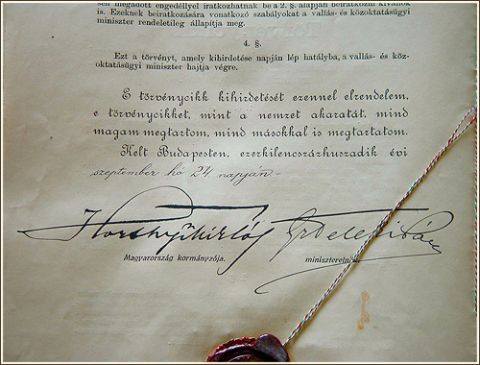 sen megadott engedéllyel iratkozhatnak be a 2. §. alapján beiratkozni kívánók
is. Ezeknek beiratkozására vonatkozó szabályokat a vallás- és közoktatásügyi
miniszter rendeletileg állapítja meg.
4. §.
Ezt a törvényt, amely kihirdetése napján lép hatályba, a vallás- és köz-
oktatásügyi miniszter hajtja végre.
E törvénycikk kihirdetését ezennel elrendelem,
e törvénycikket, mint a nemzet akaratát, mind
magam megtartom, mind másokkal is megtartatom.
Kelt Budapesten, ezerkilencszázhuszadik évi
szeptember hó 24 napján.-
Horthy Miklós
Magyarország kormányzója.
miniszterelnök